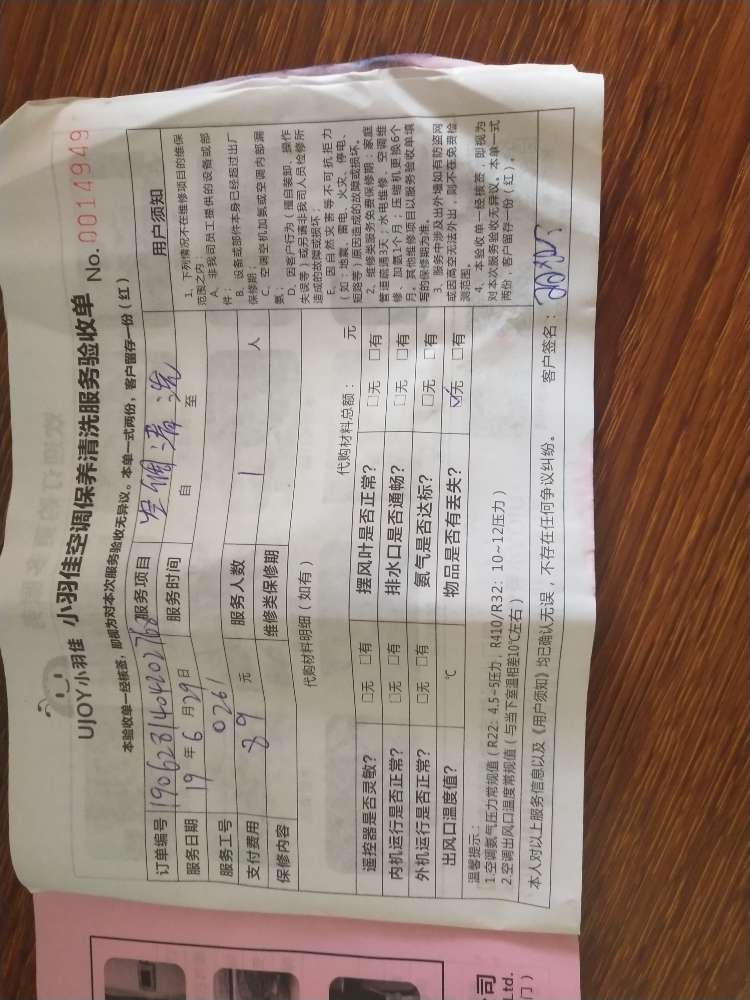 UJOY小羽佳 小羽佳空调保养清洗服务验收单
No. 0014949
本验收单一经核签，即视为对本次服务验收无异议。本单一式两份，客户留存一份（红）
订单编号 190628140420276 服务项目 空调清洗
服务日期 19 年 6 月 29 日 服务时间 自 至
服务工号 0261
支付费用 89 元 服务人数 1 人
保修内容 维修类保修期
代购材料明细（如有） 代购材料总额： 元
遥控器是否灵敏？ □无 □有 摆风叶是否正常？ □无 □有
内机运行是否正常？ □无 □有 排水口是否通畅？ □无 □有
外机运行是否正常？ □无 □有 氨气是否达标？ □无 □有
出风口温度值？ ℃ 物品是否有丢失？ ☑无 □有
温馨提示：
1.空调氨气压力常规值（R22：4.5~5压力，R410/R32：10~12压力）
2.空调出风口温度常规值（与当下室温相差10℃左右）
本人对以上服务信息以及《用户须知》均已确认无误，不存在任何争议纠纷。 客户签名：
用户须知
1、下列情况不在维修项目的维保
范围之内：
A、非我司员工提供的设备或部
件；
B、设备或部件本身已经超过出厂
保修期；
C、空调空机加氨或空调内部漏
氨；
D、因客户行为（擅自装卸、操作
失误等）或另请非我司人员检修所
造成的故障或损坏；
E、因自然灾害等不可抗拒力
（如：地震、雷电、火灾、停电、
短路等）原因造成的故障或损坏。
2、维修类服务免费保修期：家庭
管道疏通3天；水电维修、空调维
修、加氨1个月；压缩机更换6个
月。其他维修项目以服务验收单填
写的保修期为准。
3、服务中涉及出外墙如有防盗网
或因高空无法外出，则不在免费检
测范围
4、本验收单一经核签，即视为
对本次服务验收无异议。本单一式
两份，客户留存一份（红）。
司
Ltd.
门）